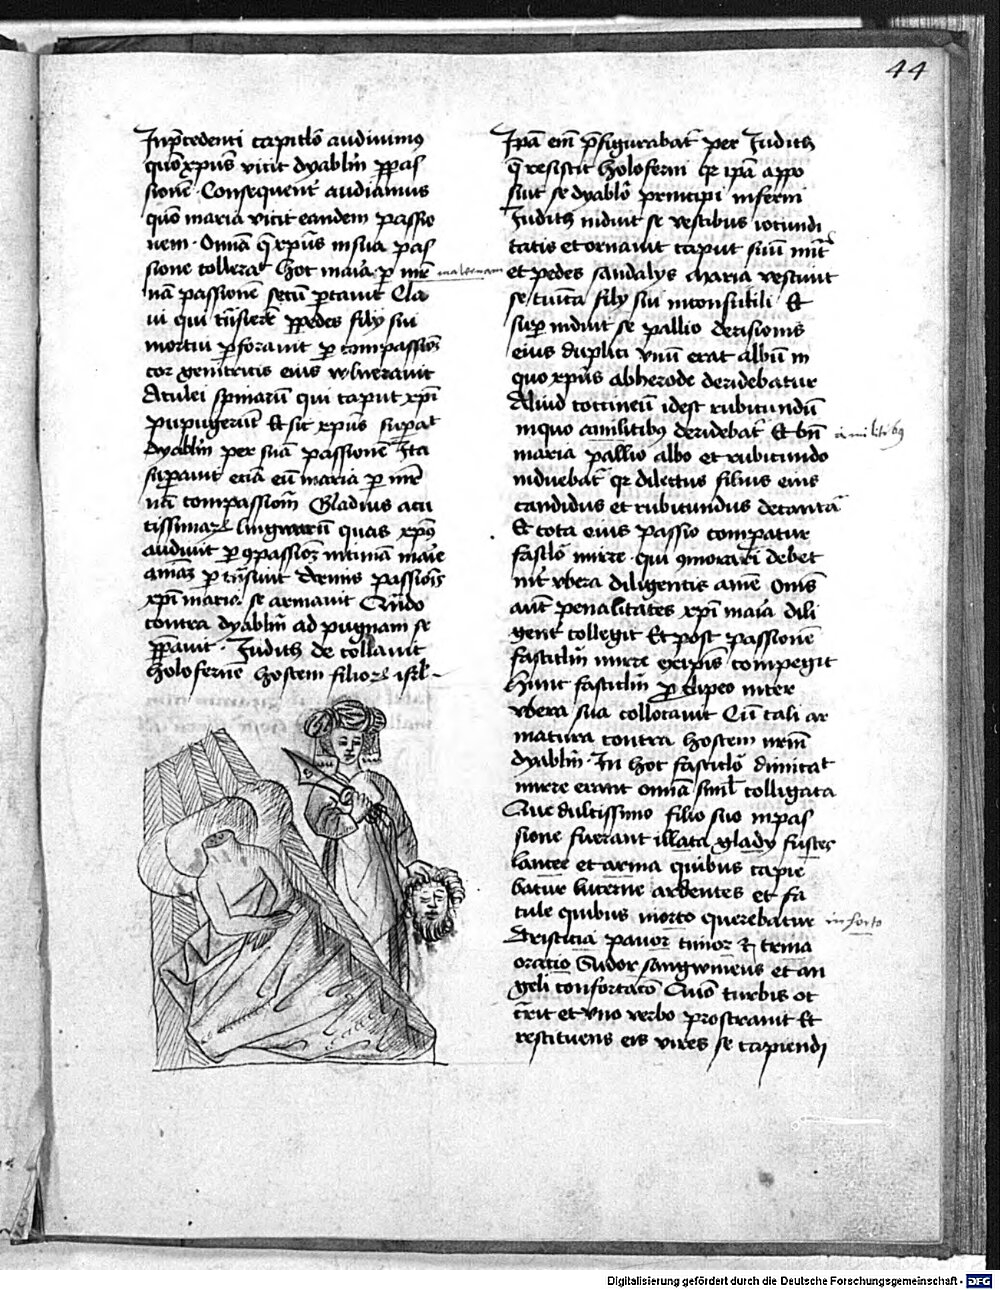 44
Inp̄cedenti capitłō audiuimꝰ
quō xp̄us vicit dyablm̄ ꝑpas
sionē Consequent̄ audiamus
quō maria vicit eandem passio
nem · Om̄ia q̄ xp̄us in sua pas
sione tollerat̄ hoc maīa p̱ mr̄e
nā passionē secū portauit Cla
ui qui tn̄sierēt ꝑpedes filij sui
mortui ꝑforauit p̱ compassiōꝫ
cor genitricis eius vulnerauit
Aculei spinarū qui caput xp̄i
pupugerūt Et sic xp̄us suꝑat
dyablm̄ per suā passionē Ita
suꝑauit eciā eū maria p̱ mr̄e
nā compassionē Gladius acu
tissimaꝝ lingwarū quas xp̄us
audiuit p̱ ꝯpassioꝫ intimā maīe
aīaꝫ ꝑtn̄siuit Armis passiōis
xp̄i maria se armauit Qn̄do
contra dyablm̄ ad pugnam se
ꝑpauit · Judith de collauit
holofernē hostem filioꝝ isrl̄
maternam
Ipā em̄ p̄figurabat̄ per Judith
q̄ resistit holoferni qꝛ ipā appo
suit se dyablō principi inferni
Judith induit se vestibus iocundi
tatis et ornauit caput suū mit̄
et pedes sandalys Maria vestiuit
se tunica filij sui inconsutili Et
suꝑ induit se pallio derisionis
eius duplici vnū erat albū in
quo xp̄us abherode deridebatur
Aliud coccineū idest rubicundū
inquo amilitibꝰ deridebat̄ Et bn̄
maria pallio albo et rubicundo
induebat̄ qꝛ dilectus filius eius
candidus et rubicundus decantā
Et tota eius passio comꝑatur
fasclō mirre · qui ꝯmorari debet
int̄ vbera diligentis aīme Om̄s
aut̄ penalitates xp̄i maīa dili
gent̄ collegit Et post passionē
fasciclm̄ mirre ex ip̄is compegit
Hunc fasciclm̄ ꝓ clipeo inter
vbera sua collocauit Cū tali ar
matura contra hostem nr̄m
dyablm̄ · In hoc fasciclō diuicat̄
mirre erant om̄ia siml̄ colligata
Que dulcissimo filio suo in pas
sione fuerant illata gladij fustes
lancee et arma quibus capie
batur lucerne ardentes et fa
cule quibus in orto querebatur
Tristicia pauor timor & trina
oracio Sudor sangwineus et an
geli confortacō Quō turbis oc
cr̄rit et vno verbo prostrauit Et
restituens eis vires se capiendi
a militibꝰ
in horto
Digitalisierung gefördert durch die Deutsche Forschungsgemeinschaft - DFG